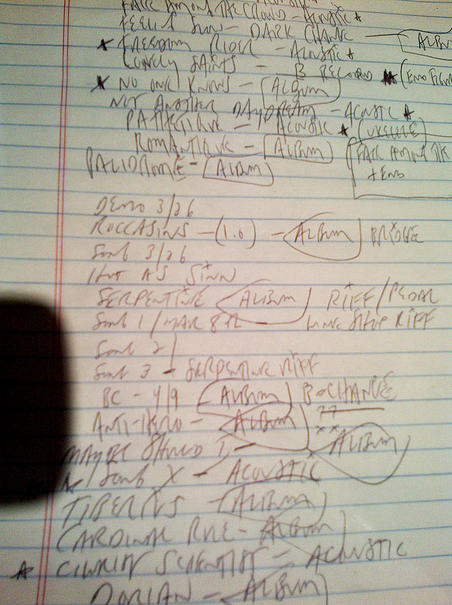 FAKE AMONG THE CROWD - ACOUSTIC *
SUN - DARK CHANGE - ALBUM
* FREEDOM RIDER - ACOUSTIC *
LONELY SAINTS - B RECORD **
* NO ONE KNOWS - ALBUM
NOT ANOTHER DAYDREAM - ACOUSTIC *
PATHETIQUE - ACOUSTIC * (UKULELE)
ROMANTIQUE - ALBUM
PALIDROME - ALBUM
DEMO 3/26
ROCCASINS - (1.0) - ALBUM BRIDGE
SONG 3/26
HOT AS SINN
SERPENTINE ALBUM RIFF/PEDAL
SONG 1/MAR 8TH - RIFF
SONG 2
SONG 3 - SERPENTINE RIFF
BC - 4/9 ALBUM B-CHANGE
ANTI-HERO - ALBUM ??
MAYBE SHOULD I - ALBUM
SONG X - ACOUSTIC
TIBERIUS - ALBUM
CARDINAL RULE - ALBUM
* SCIENTIST - ACOUSTIC
DORIAN - ALBUM